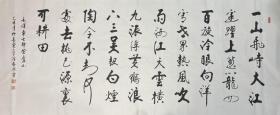 一山飛峙大江
邊躍上葱蘢四
百旋冷眼向洋
看世界熱風吹
雨洒江天雲橫
九派浮黃鶴浪
下三吳起白煙
陶令不知何
處去桃花源裏
可耕田
毛澤東七律登廬山